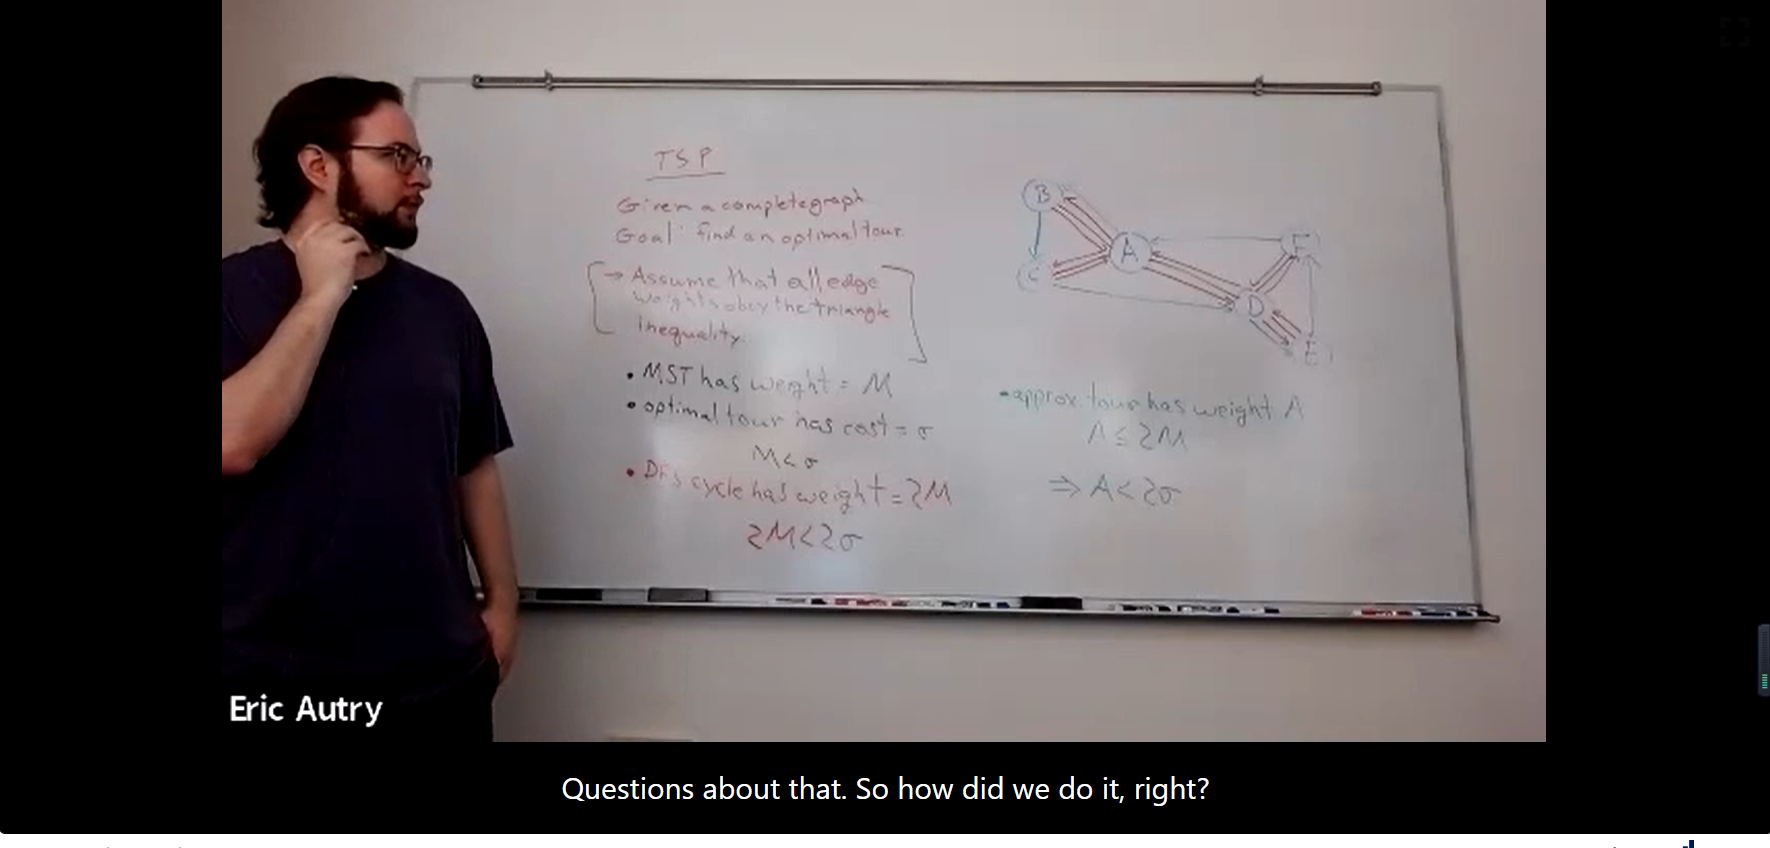 TSP
Given a complete graph
Goal: find an optimal tour.
→ Assume that all edge
weights obey the triangle
inequality.
• MST has weight = M
• optimal tour has cost = σ
M < σ
• DFS cycle has weight = 2M
2M < 2σ
B
A
C
F
D
E
• approx. tour has weight A
A ≤ 2M
⇒ A < 2σ
Eric Autry
Questions about that. So how did we do it, right?